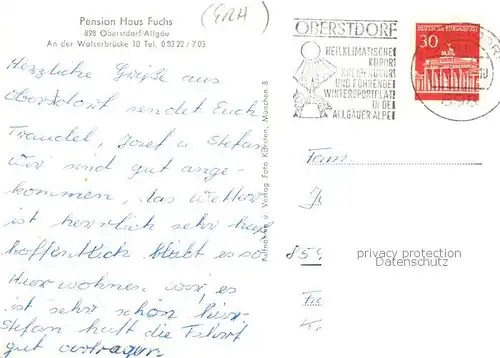 Pension Haus Fuchs
898 Oberstdorf/Allgäu
An der Walserbrücke 10 Tel. 0 83 22 / 7 05
(GRH)
Herzliche Grüße aus
Oberstdorf sendet Euch
Traudel, Josef u Stefan
wir sind gut ange-
kommen, das Wetter
ist herrlich sehr heiß
hoffentlich bleibt es so
Hier wohnen wir, es
ist sehr schön hier
Stefan hat die Fahrt
gut vertragen
Aufnahme u. Verlag Foto Kirsten, München 8
OBERSTDORF
HEILKLIMATISCHER
KURORT
KNEIPPKURORT
UND FÜHRENDER
WINTERSPORTPLATZ
IN DEN
ALLGÄUER ALPEN
DEUTSCHE BUNDESPOST
30
898
Fam.
859
privacy protection
Datenschutz